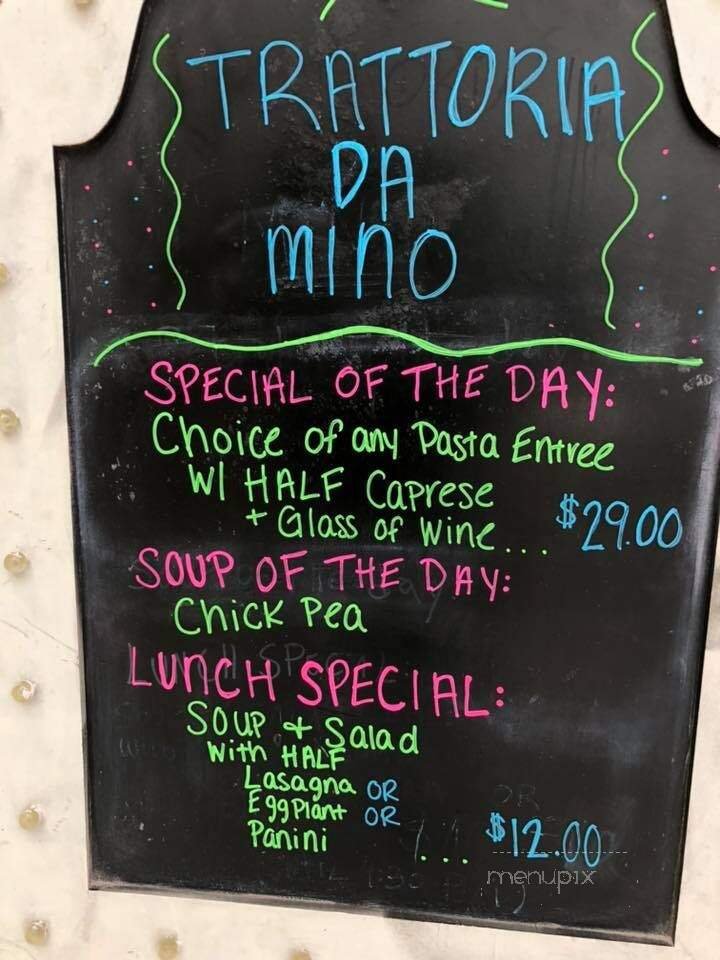 TRATTORIA
DA
MINO
SPECIAL OF THE DAY:
Choice of any Pasta Entree
W/ HALF Caprese
+ Glass of Wine... $29.00
SOUP OF THE DAY:
Chick Pea
LUNCH SPECIAL:
SOUP + Salad
with HALF
Lasagna OR
Eggplant OR
Panini ... $12.00
menupix